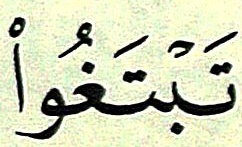 تَبْتَغُوا۟